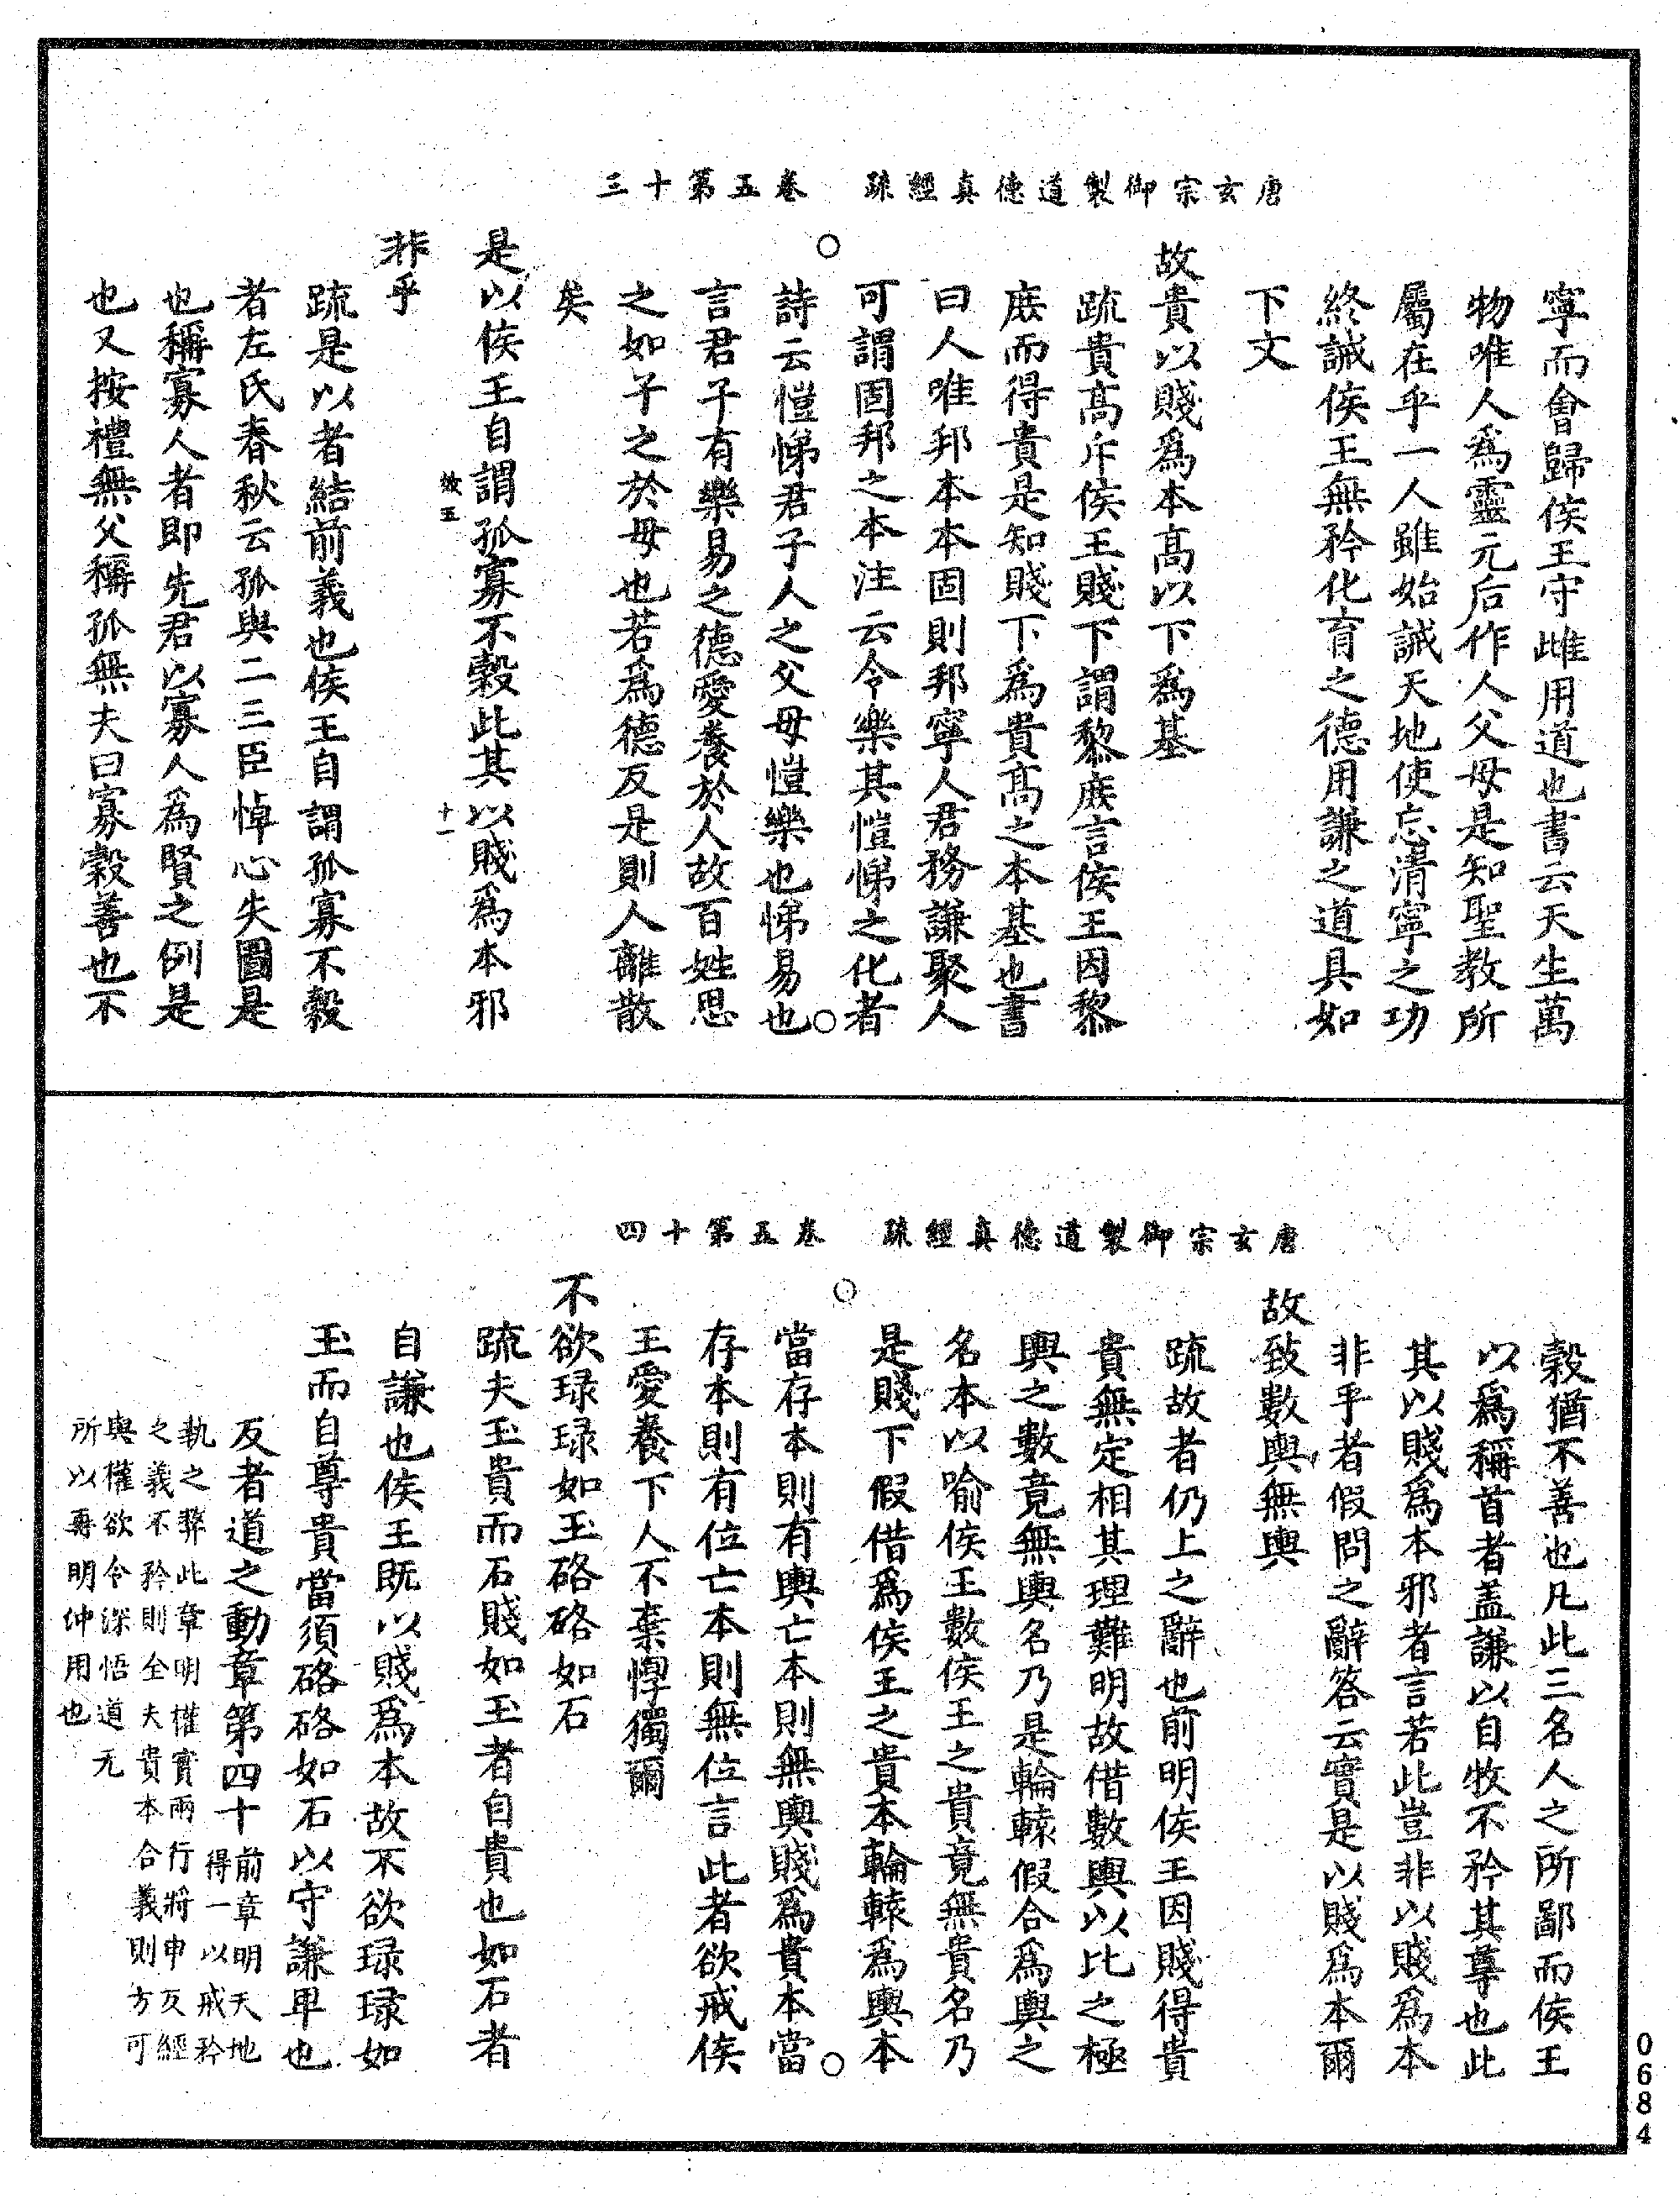 唐玄宗御製道德真經疏　卷五第十三
寧而會歸侯王守雌用道也書云天生萬
物唯人爲靈元后作人父母是知聖教所
屬在乎一人雖始誡天地使忘清寧之功
終誡侯王無矜化育之德用謙之道具如
下文
故貴以賤爲本高以下爲基
疏貴高斥侯王賤下謂黎庶言侯王因黎
庶而得貴是知賤下爲貴高之本基也書
曰人唯邦本本固則邦寧人君務謙聚人
可謂固邦之本注云令樂其愷悌之化者
詩云愷悌君子人之父母愷樂也悌易也
言君子有樂易之德愛養於人故百姓思
之如子之於母也若爲德反是則人離散
矣
是以侯王自謂孤寡不穀此其以賤爲本邪
五　十一
非乎
疏是以者結前義也侯王自謂孤寡不穀
者左氏春秋云孤與二三臣悼心失圖是
也稱寡人者即先君以寡人爲賢之例是
也又按禮無父稱孤無夫曰寡穀善也不
唐玄宗御製道德真經疏　卷五第十四
穀猶不善也凡此三名人之所鄙而侯王
以爲稱首者盖謙以自牧不矜其尊也此
其以賤爲本邪者言若此豈非以賤爲本
非乎者假問之辭答云實是以賤爲本爾
故致數輿無輿
疏故者仍上之辭也前明侯王因賤得貴
貴無定相其理難明故借數輿以比之極
輿之數竟無輿名乃是輪轅假合爲輿之
名本以喻侯王數侯王之貴竟無貴名乃
是賤下假借爲侯王之貴本輪轅爲輿本
當存本則有輿亡本則無輿賤爲貴本當
存本則有位亡本則無位言此者欲戒侯
王愛養下人不棄惸獨爾
不欲琭琭如玉硌硌如石
疏夫玉貴而石賤如玉者自貴也如石者
自謙也侯王既以賤爲本故不欲琭琭如
玉而自尊貴當須硌硌如石以守謙卑也
反者道之動章第四十
前章明天地
得一以戒矜
執之弊此章明權實兩行將申反經
之義不矜則全夫貴本合義則方可
與權欲令深悟道元
所以再明沖用也
0684